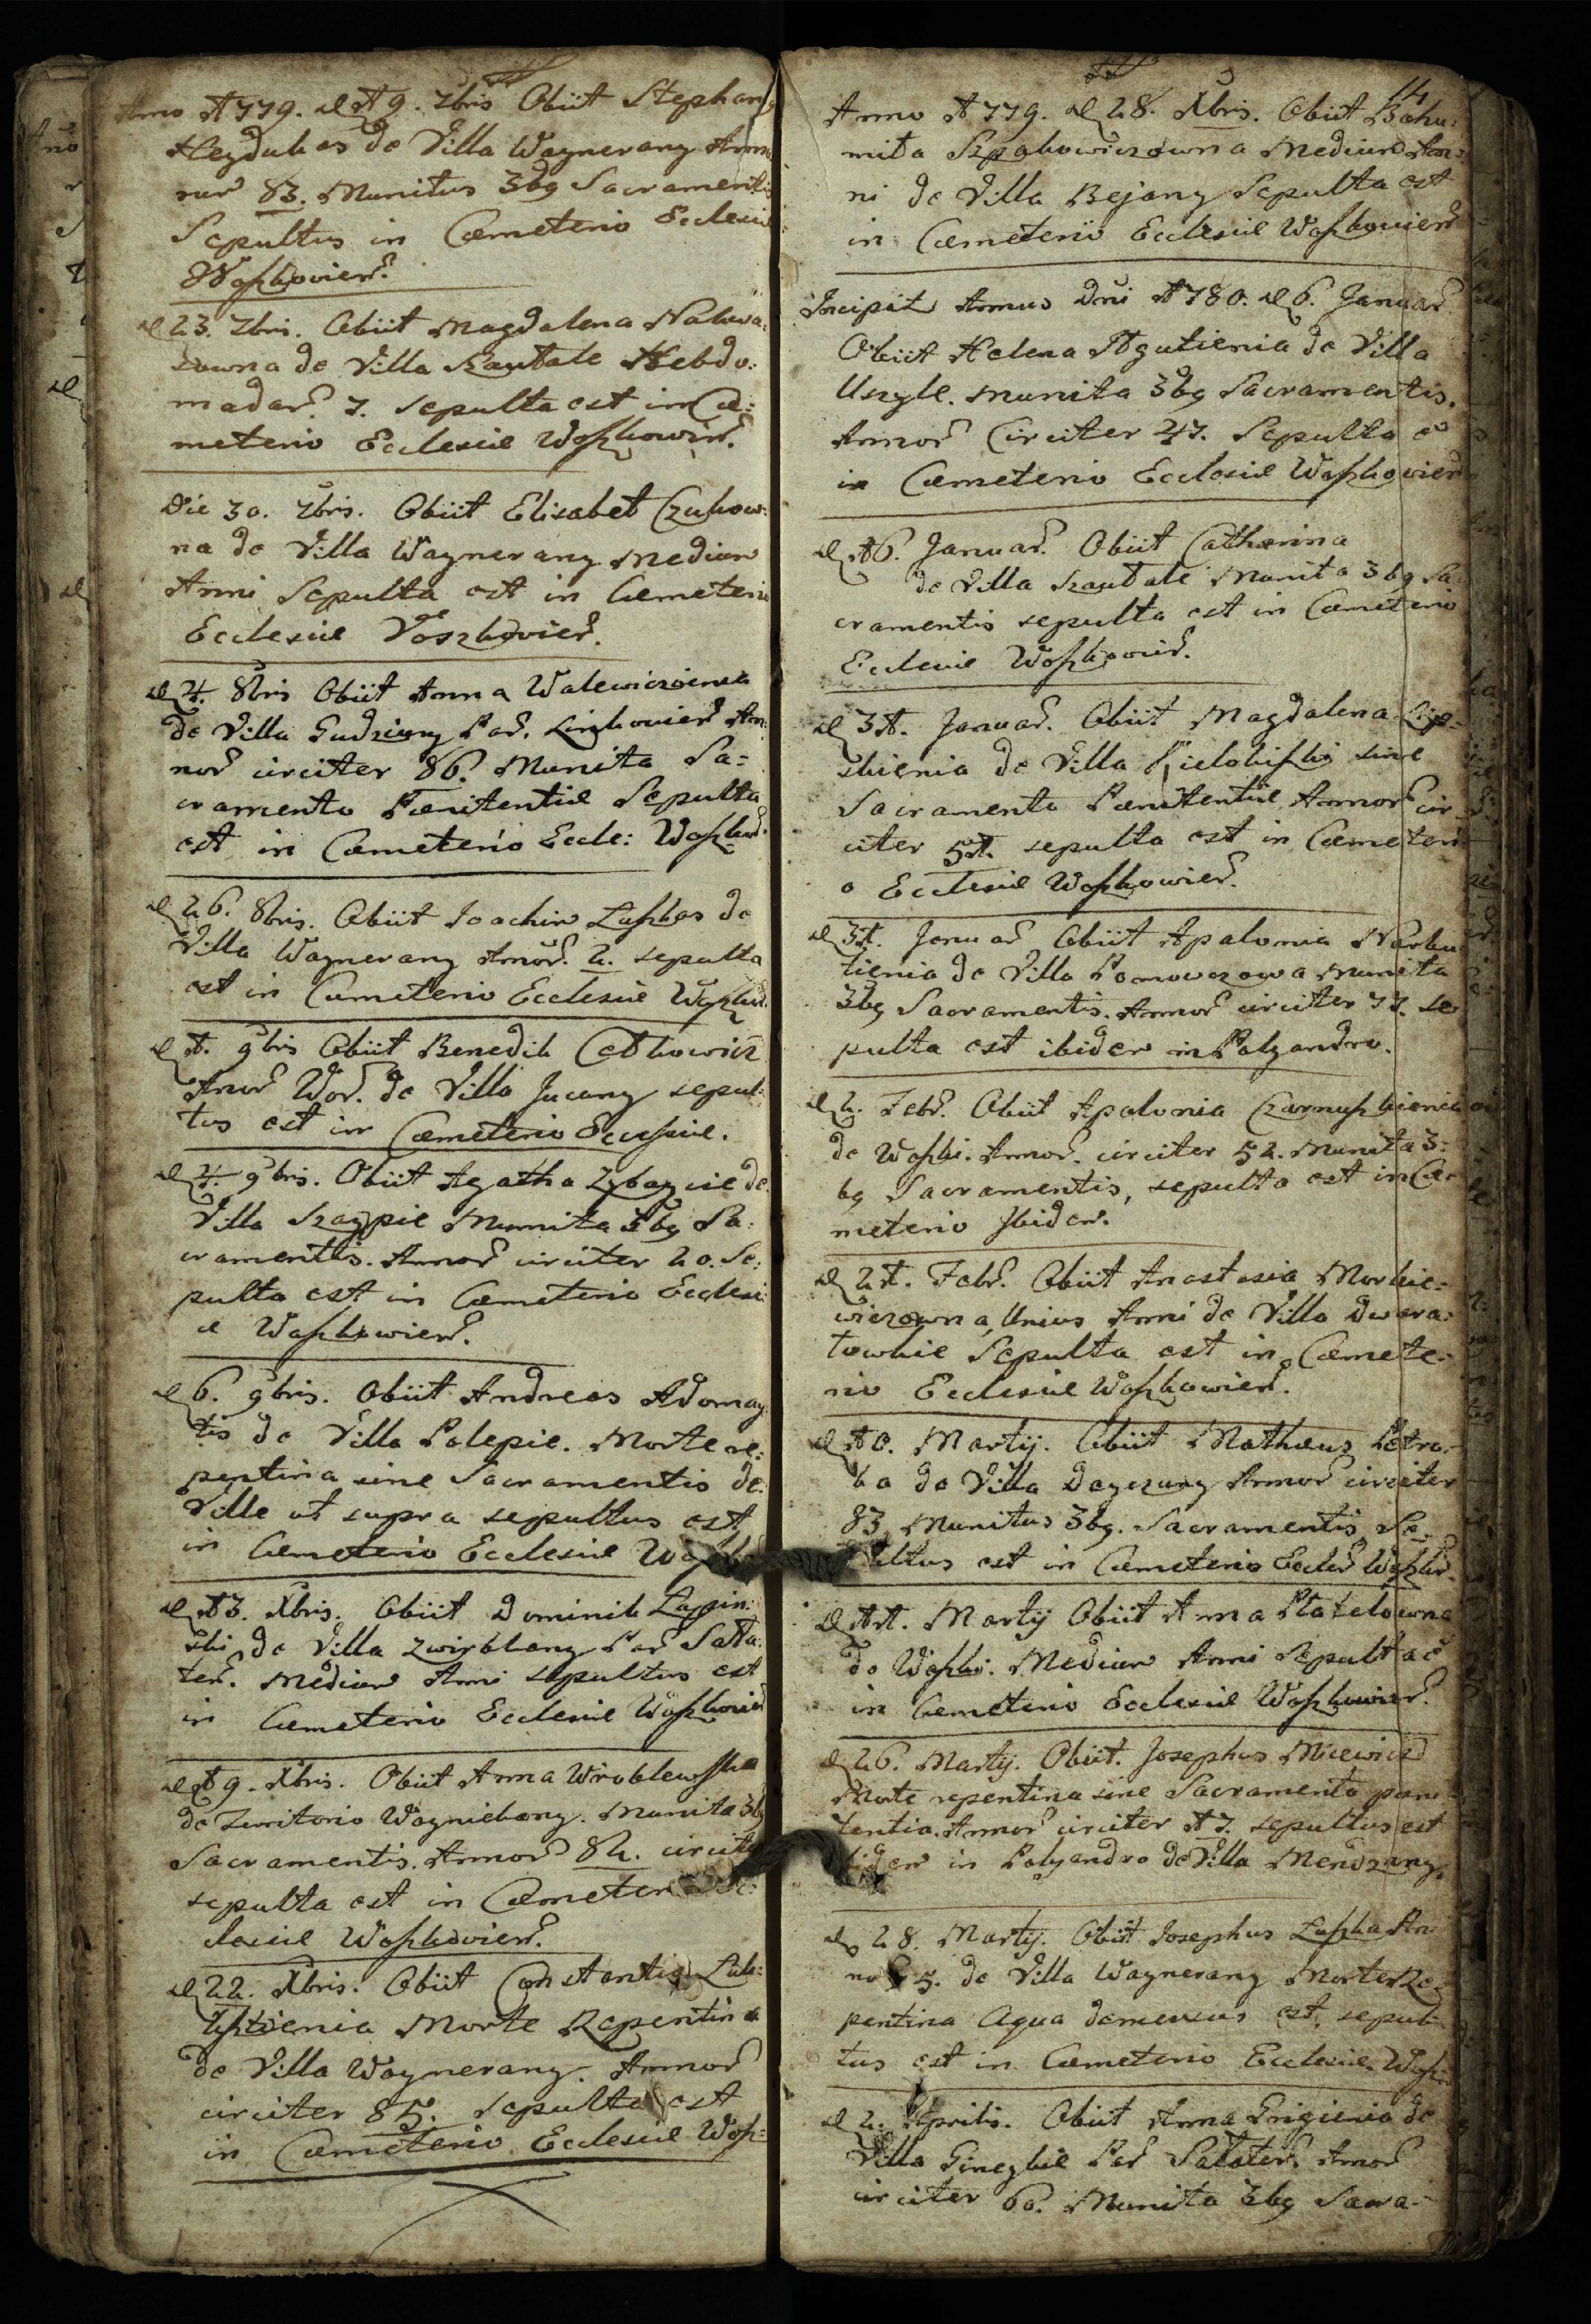 Anno 1779. d 19. 7bris Obiit Stephang
Heydukas de Villa Waynerany Anno
rur 83. Munitus 3bg Sacramentis
Sepultus in Cœmeterio Ecclesiæ
Woszkovien.
d 23. 7bris. Obiit Magdalena
de Villa Szautale Hebdo:
madar. 7. sepulta est in Cæ:
meterio Ecclesiæ Woszkowien.
Die 30. 7bris. Obiit Elisabet Czuhow:
na de Villa Waynerany Medium
Anni Sepulta est in Cæmeterio
Ecclesiæ Voszkovien.
d 4. 8bris Obiit Anna Walewiczienia
de Villa Gudziuny Par. Linkovien An:
nor circiter 86. Munita Sa=
cramento Pænitentiæ Sepulta
est in Cæmeterio Eccle: Woszkow.
d 26. 8bris. Obiit Joachim Luszkas de
Villa Waynerany Annor. 2. sepulta
est in Cæmeterio Ecclesiæ Woszkow.
d 1. 9bris Obiit Benedik Cetkowicz
Annor de Villa Jucany sepul:
tus est in Cæmeterio Ecclesiæ.
d 4. 9bris. Obiit Agatha de
Villa Szaypie Munita 3bg Sa:
cramentis. Annor circiter 20. Se:
pulta est in Cæmeterio Ecclesi:
æ Woszkowien.
d 6. 9bris. Obiit Andreas Adomay
tis de Villa Palepie. Morte re:
pentina sine Sacramentis de
Ville ut supra sepultus est
in Cæmeterio Ecclesiæ
d 13. Xbris. Obiit Dominik Lapin:
ski de Villa Zwirblany Par Salta:
ten. Medium Anni sepultus est
in Cæmeterio Ecclesiæ Woszkowien
d 19. Xbris. Obiit Anna Wroblewska
de Territorio Waynielany. Munita 3bg
Sacramentis. Annor 82. circiter
sepulta est in Cæmeter
clesiæ Woszkowien.
d 22. Xbris. Obiit Constantia Luk:
Morte Repentina
de Villa Waynerany. Annor
circiter 85. sepulta est
in Cæmeterio Ecclesiæ Wosz=
14
Anno 1779. d 28. Xbris. Obiit Bohu:
miła Szpakowiczowna Medium An:
ni de Villa Bejany Sepulta est
in Cæmeterio Ecclesiæ Woszkowien
Incipit Annus Dni 1780. d 6. Januar
Obiit Helena de Villa
Uszyle. munita 3bg Sacramentis.
Annor Circiter 47. Sepulta e
in Cæmeterio Ecclesiæ Woszkowien
d 16. Januar. Obiit Catharina
de Villa Szautale Munita 3bg Sa
cramentis sepulta est in Cæmeterio
Ecclesiæ Woszkowien.
d 31. Januar. Obiit Magdalena Lip=
skienia de Villa sine
Sacramento Pænitentiæ Annor cir
citer 51. sepulta est in Cæmeteri
o Ecclesiæ Woszkowien.
d 31. Januar Obiit Apalonia Narbu
tienia de Villa munita
3bg Sacramentis. Annor circiter 77. se
pulta est ibidem in Polyandro.
d 2. Febr. Obiit Apalonia Czarnuszkienia
de Woszki. Annor. circiter 52. Munita 3:
bg Sacramentis, sepulta est in Cæ=
meterio Ibidem.
d 21. Febr. Obiit Anastasia Morkie=
wiczowna Unius Anni de Villa Dwara:
towkie Sepulta est in Cæmete=
rio Ecclesiæ Woszkowien.
d 10. Martij. Obiit Mathæus Petra:
ka de Villa Dayczuny Annor circiter
83 Munitus 3bg. Sacramentis Se=
pultus est in Cæmeterio Eccles Woszkw.
d 11. Martij Obiit Anna Platelowna
de Woszki. Medium Anni Sepulta e
in Cæmeterio Ecclesiæ Woszkowien.
d 26. Martij. Obiit. Josephus Micewicz
Morte repentina sine Sacramento pæni
tentia. Annor circiter 17. sepultus est
ibidem in Polyandro de Villa Mendzuny.
d 28. Martij. Obiit Josephus Luszka An
nor 5. de Villa Waynerany Morte Re=
pentina Aqua demersus est, sepul
tus est in Cæmeterio Ecclesiæ Woszk
d 2. Aprilis. Obiit Anna Grigienia de
Villa Gineykie Par Salaten. Annor
circiter 60. Munita 3bg Sacra=